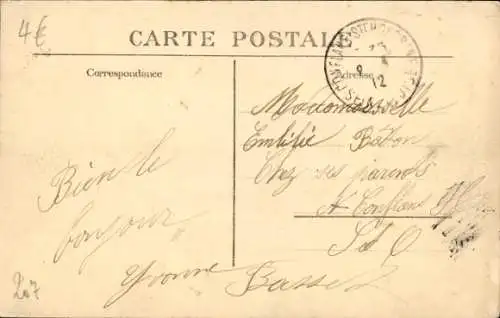 4€
CARTE POSTALE
Correspondance
Adresse
CONFLANS STE HONORINE
8
12
Mademoiselle
Emilie Baton
Chez ses parents
A Conflans
S et O
Bien le
bonjour
Yvonne
Basset
207